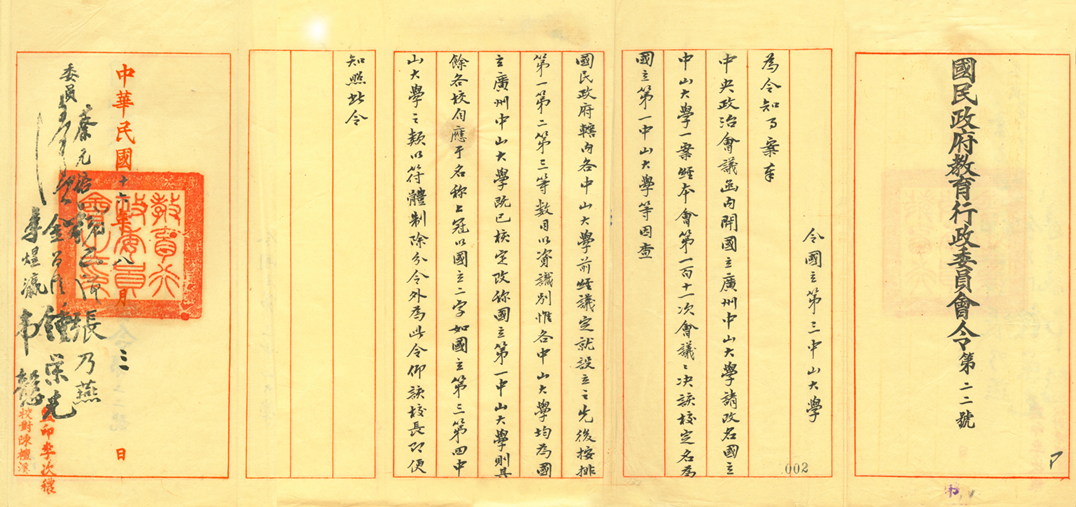 國民政府教育行政委員會令第二二號
令國立第三中山大學
為令知事案奉
中央政治會議函內開國立廣州中山大學請改名國立
中山大學一案經本會第一百十一次會議議決該校定名為
國立第一中山大學等因查
國民政府轄內各中山大學前經議定就設立之先後按排
第一第二第三等數目以資識別惟各中山大學均為國
立廣州中山大學既已核定改稱國立第一中山大學則其
餘各校自應于名稱上冠以國立二字如國立第三第四中
山大學之類以符體制除分令外為此令仰該校長即便
知照此令
002
中華民國十六年八月三日
委員
蔡元培
張乃燕
金曾澄
鍾榮光
李煜瀛
韋慤
教育行政委員會印
監印李次
校對陳